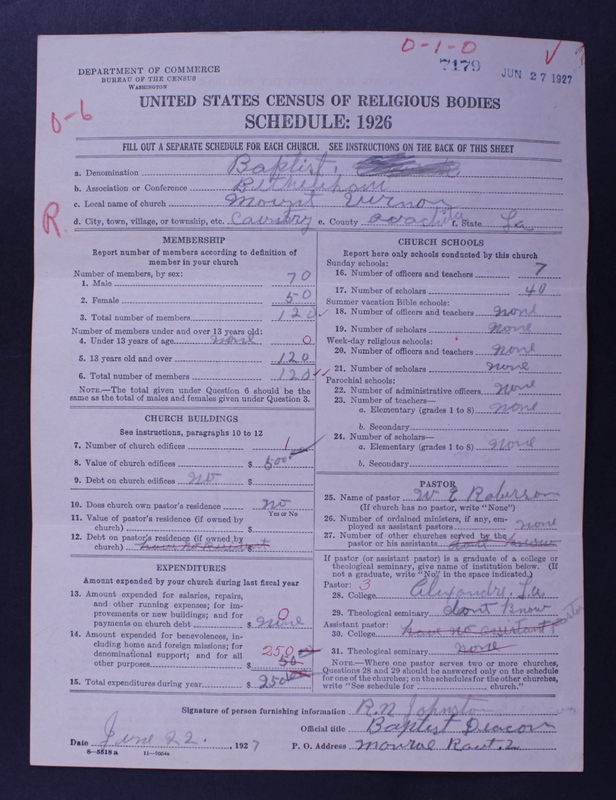 0-1-0
7179
JUN 27 1927
DEPARTMENT OF COMMERCE
BUREAU OF THE CENSUS
WASHINGTON
0-6
UNITED STATES CENSUS OF RELIGIOUS BODIES
SCHEDULE: 1926
FILL OUT A SEPARATE SCHEDULE FOR EACH CHURCH. SEE INSTRUCTIONS ON THE BACK OF THIS SHEET
a. Denomination Baptist,
b. Association or Conference
c. Local name of church Mount Vernon
R. d. City, town, village, or township, etc. e. County Ouachita f. State La
MEMBERSHIP
Report number of members according to definition of
member in your church
Number of members, by sex:
1. Male 70
2. Female 50
3. Total number of members 120
Number of members under and over 13 years old:
4. Under 13 years of age none 0
5. 13 years old and over 120
6. Total number of members 120
NOTE.—The total given under Question 6 should be the
same as the total of males and females given under Question 3.
CHURCH BUILDINGS
See instructions, paragraphs 10 to 12
7. Number of church edifices 1
8. Value of church edifices $ 500
9. Debt on church edifices no $
10. Does church own pastor's residence no
Yes or No
11. Value of pastor's residence (if owned by
church) $
12. Debt on pastor's residence (if owned by
church) $
EXPENDITURES
Amount expended by your church during last fiscal year
13. Amount expended for salaries, repairs,
and other running expenses; for im-
provements or new buildings; and for
payments on church debt $ none 0
14. Amount expended for benevolences, in-
cluding home and foreign missions; for
denominational support; and for all
other purposes $ 250 50
15. Total expenditures during year $ 250
CHURCH SCHOOLS
Report here only schools conducted by this church
Sunday schools:
16. Number of officers and teachers 7
17. Number of scholars 40
Summer vacation Bible schools:
18. Number of officers and teachers none
19. Number of scholars none
Week-day religious schools:
20. Number of officers and teachers none
21. Number of scholars none
Parochial schools:
22. Number of administrative officers none
23. Number of teachers—
a. Elementary (grades 1 to 8) none
b. Secondary
24. Number of scholars—
a. Elementary (grades 1 to 8) none
b. Secondary
PASTOR
25. Name of pastor W E Roberson
(If church has no pastor, write "None")
26. Number of ordained ministers, if any, em-
ployed as assistant pastors none
27. Number of other churches served by the
pastor or his assistants
If pastor (or assistant pastor) is a graduate of a college or
theological seminary, give name of institution below. (If
not a graduate, write "No" in the space indicated.)
Pastor: 3
28. College La
29. Theological seminary dont know
Assistant pastor:
30. College have no assistant pastor
31. Theological seminary none
NOTE.—Where one pastor serves two or more churches,
Questions 28 and 29 should be answered only on the schedule
for one of the churches; on the schedules for the other churches,
write "See schedule for church."
Signature of person furnishing information R. N Johnston
Official title Baptist Deacon
Date June 22. 1927 P. O. Address Monroe Rout. 2
8-5518 a 11-9064a